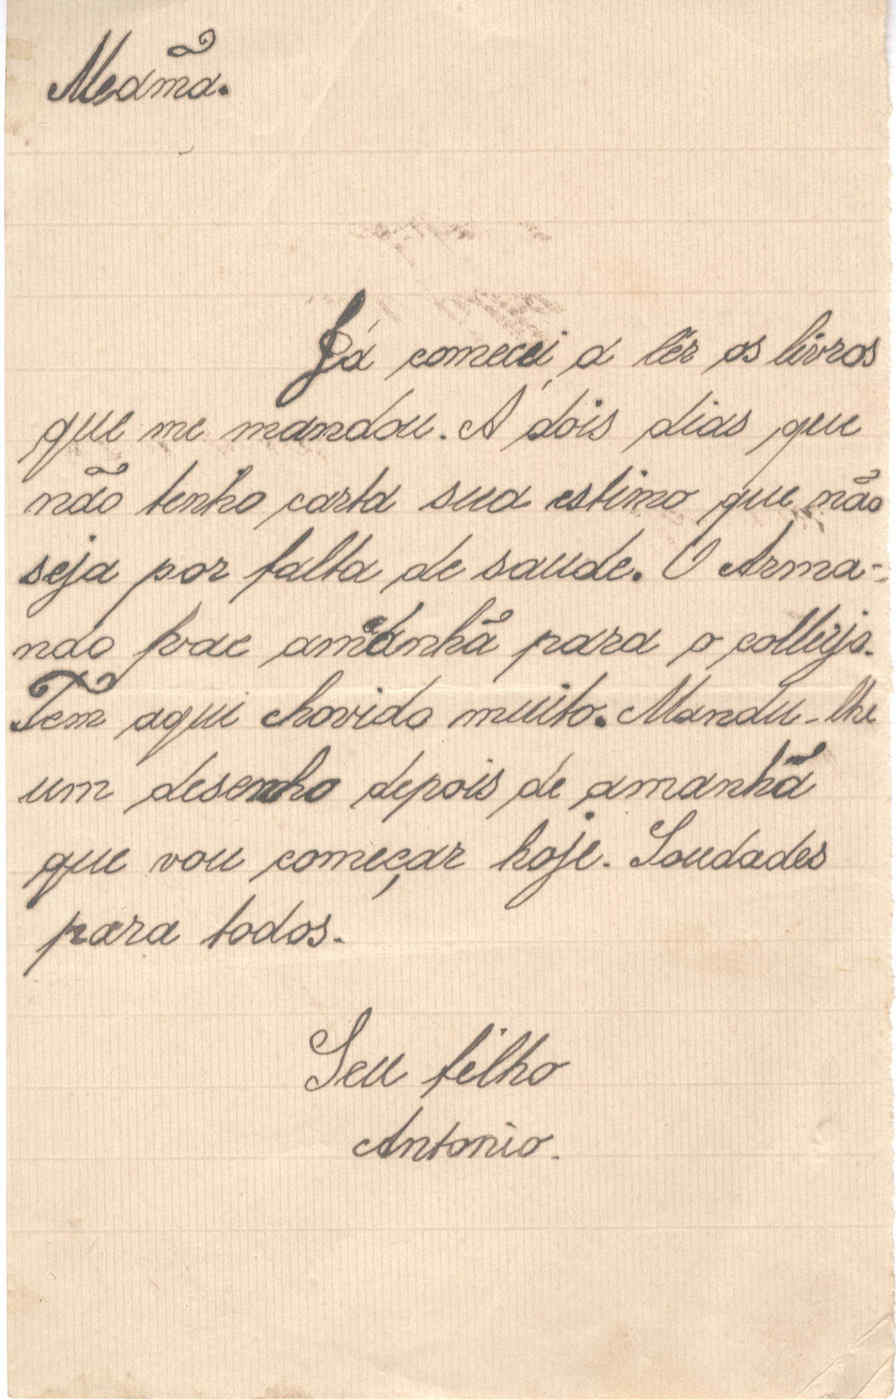 Meamã.
Já comecei a lêr os livros
que me mandou. A dois dias que
não tenho carta sua estimo que não
seja por falta de saude. O Arma-
ndo vae amanhã para o collegio.
Tem aqui chovido muito. Mando-lhe
um desenho depois de amanhã
que vou começar hoje. Saudades
para todos.
Seu filho
Antonio.